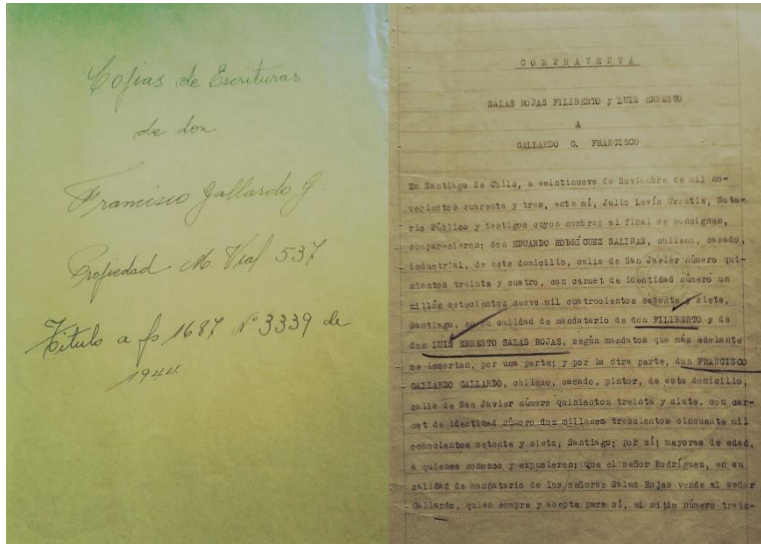 Copias de Escrituras
de don
Francisco Gallardo G
Propiedad M. Vial 537
Título a fs 1687 Nº 3339 de
1944
COMPRAVENTA
SALAS ROJAS FILIBERTO y LUIS ERNESTO
A
GALLARDO G. FRANCISCO
En Santiago de Chile, a veintinueve de Noviembre de mil no-
vecientos cuarenta y tres, ante mí, Julio Lavín Urrutia, Nota-
rio Público y testigos cuyos nombres al final se consignan,
comparecieron: don EDUARDO RODRÍGUEZ SALINAS, chileno, casado,
industrial, de este domicilio, calle de San Javier número qui-
nientos treinta y cuatro, con carnet de identidad número un
millón setecientos nueve mil cuatrocientos setenta y siete,
Santiago, en su calidad de mandatario de don FILIBERTO y de
don LUIS ERNESTO SALAS ROJAS, según mandatos que más adelante
se insertan, por una parte; y por la otra parte, don FRANCISCO
GALLARDO GALLARDO, chileno, casado, pintor, de este domicilio,
calle de San Javier número quinientos treinta y siete, con car-
net de identidad número dos millones trescientos cincuenta mil
ochocientos setenta y siete, Santiago; por sí; mayores de edad,
a quienes conozco y expusieron: Que el señor Rodríguez, en su
calidad de mandatario de los señores Salas Rojas vende al señor
Gallardo, quien compra y acepta para sí, el sitio número trein-